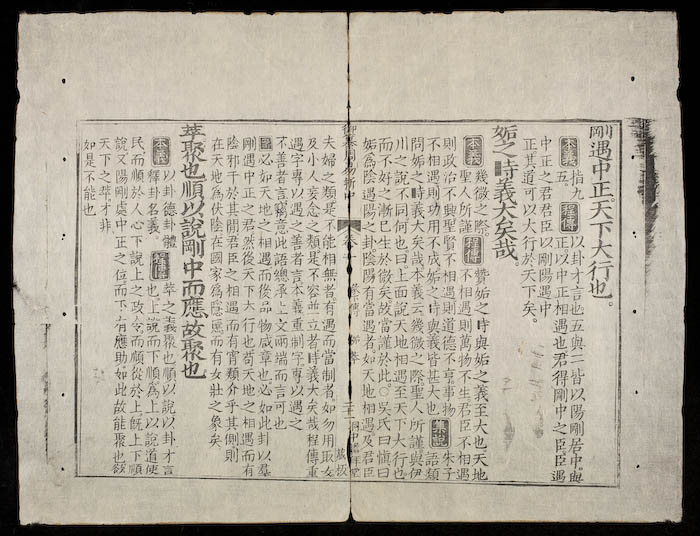 剛遇中正。天下大行也。
本義
指九
五。
程傳
以卦才言也五與二皆以陽剛居中。與
正以中正相遇也君得剛中之臣。臣遇
中正之君君臣以剛陽遇中
正其道可以大行於天下矣。
姤之時義大矣哉。
本義
幾微之際。
聖人所謹
程傳
贊姤之時與姤之義至大也天地
不相遇則萬物不生君臣不相遇
則政治不興聖賢不相遇則道德不亨事物
不相遇則功用不成姤之時與義皆甚大也
集說
朱子
語類
問姤之時義大矣哉本義云幾微之際聖人所謹與伊
川之說不同何也曰上面說天地相遇至天下大行也
而不好之漸已生於微矣故當謹於此○吳氏曰慎曰
姤為陰遇陽之卦陰陽有當遇者如天地相遇及君臣
御纂周易折中 卷十
夫婦之類是不能相無者有遇而當制者如勿用取女
及小人妄念之類是不容並立者時義大矣哉程傳重
遇字專以遇之善者言本義重制字專以遇之
不善者言竊意此語總承上文兩端而言可也
案必如天地之相遇而後品物咸章也必如此卦以羣
剛遇中正之君然後天下大行也苟天地之相遇而有
陰邪干於其間君臣之相遇而有宵類介乎其側則
在天地為伏陰在國家為隱慝而有女壯之象矣
萃聚也順以說剛中而應故聚也
本義
以卦德卦體
釋卦名義。
程傳
萃之義聚也順以說以卦才言
也。上說而下順為上以說道使
民而順於人心下說上之政令而順從於上旣上下順
說又陽剛處中正之位而下有應助如此故能聚也欲
天下之萃才非
如是不能也